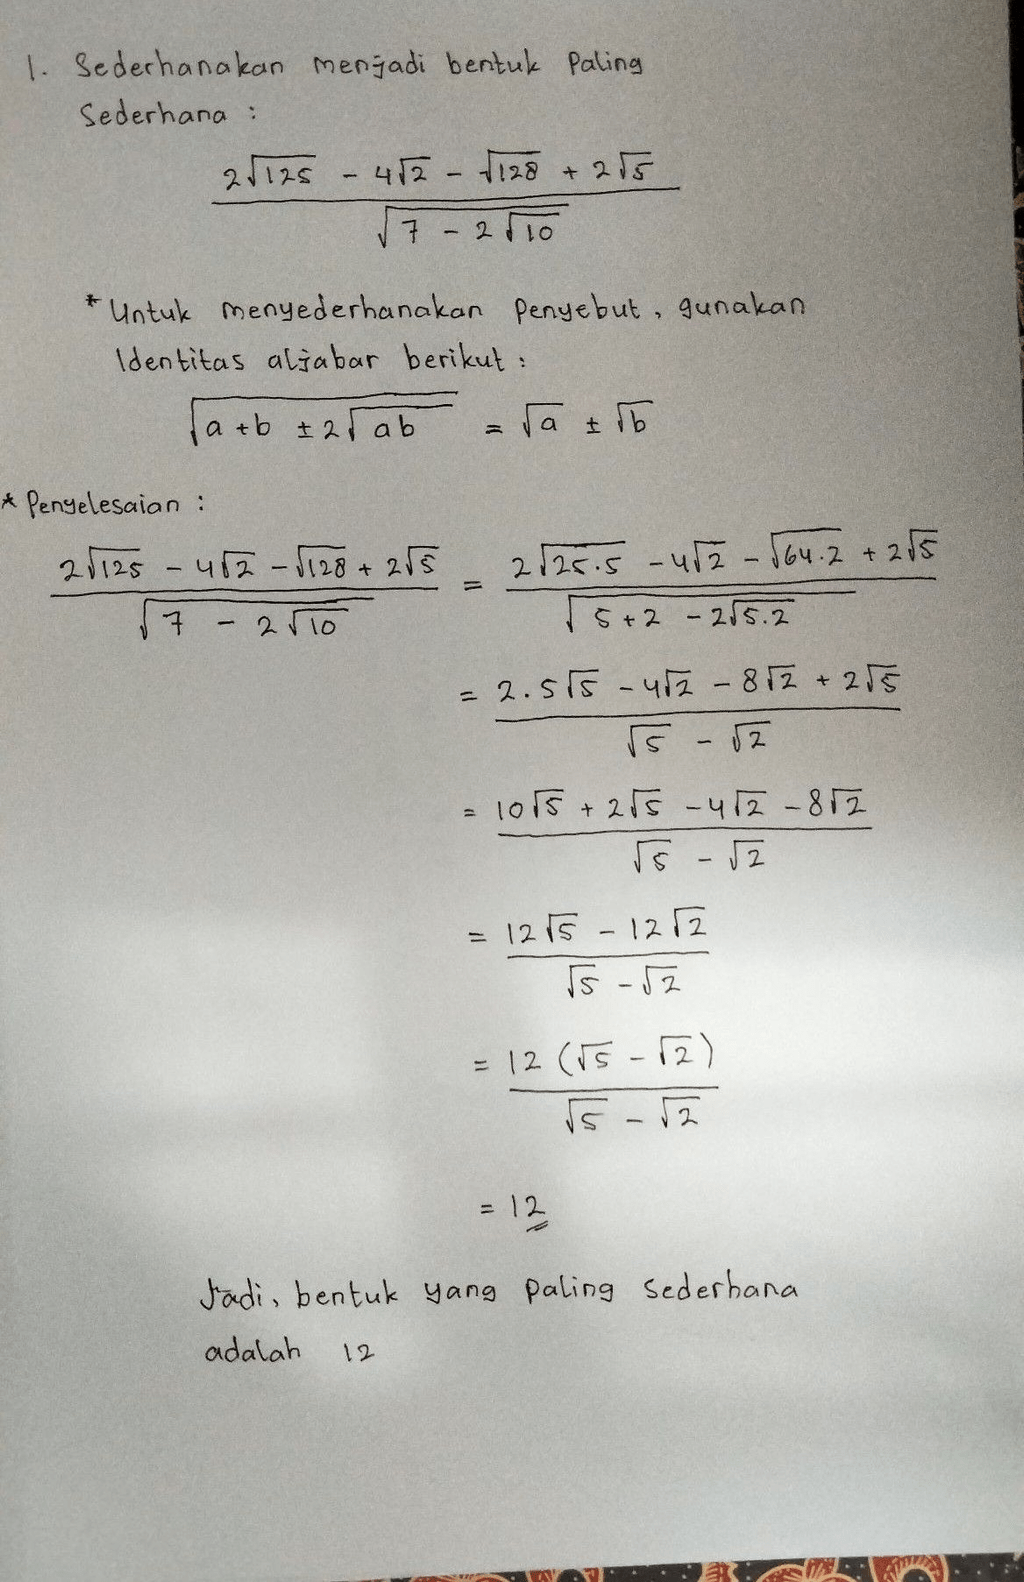 1. Sederhanakan menjadi bentuk Paling
Sederhana :
(2√125 - 4√2 - √128 + 2√5) / √(7 - 2√10)
* Untuk menyederhanakan Penyebut, gunakan
Identitas aljabar berikut :
√(a+b ± 2√ab) = √a ± √b
* Penyelesaian :
(2√125 - 4√2 - √128 + 2√5) / √(7 - 2√10) = (2√25.5 - 4√2 - √64.2 + 2√5) / √(5+2 - 2√5.2)
= (2.5√5 - 4√2 - 8√2 + 2√5) / (√5 - √2)
= (10√5 + 2√5 - 4√2 - 8√2) / (√5 - √2)
= (12√5 - 12√2) / (√5 - √2)
= 12 (√5 - √2) / (√5 - √2)
= 12
Jadi, bentuk yang Paling Sederhana
adalah 12